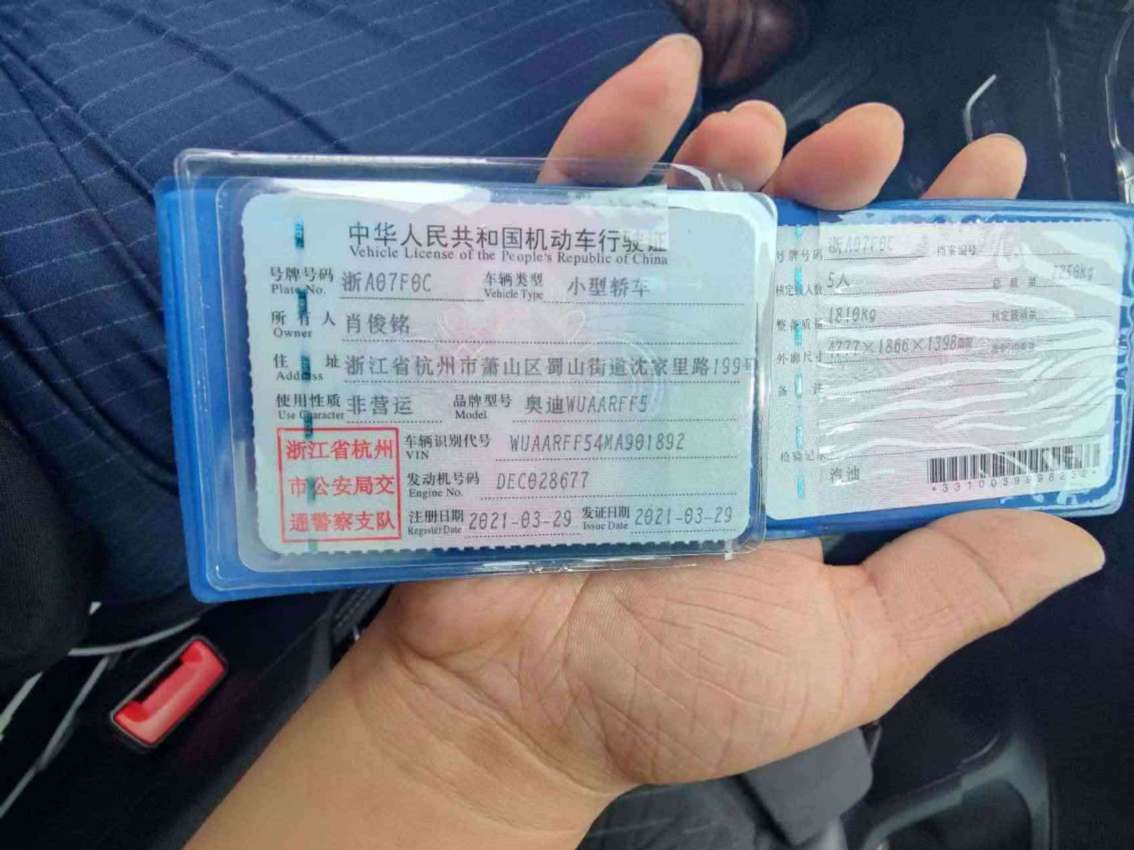 中华人民共和国机动车行驶证
Vehicle License of the People's Republic of China
号牌号码 浙A07F0C 车辆类型 小型轿车
Plate No. Vehicle Type
所有人 肖俊铭
Owner
住址 浙江省杭州市萧山区蜀山街道沈家里路199号
Address
使用性质 非营运 品牌型号 奥迪WUAARFF5
Use Character Model
浙江省杭州
市公安局交
通警察支队
车辆识别代号 WUAARFF54MA901892
VIN
发动机号码 DEC028677
Engine No.
注册日期 2021-03-29 发证日期 2021-03-29
Register Date Issue Date
号牌号码 浙A07F0C 档案编号
核定载人数 5人 总质量
整备质量 1810kg 核定载质量
外廓尺寸 4777×1866×1398mm
备注
检验记录
汽油